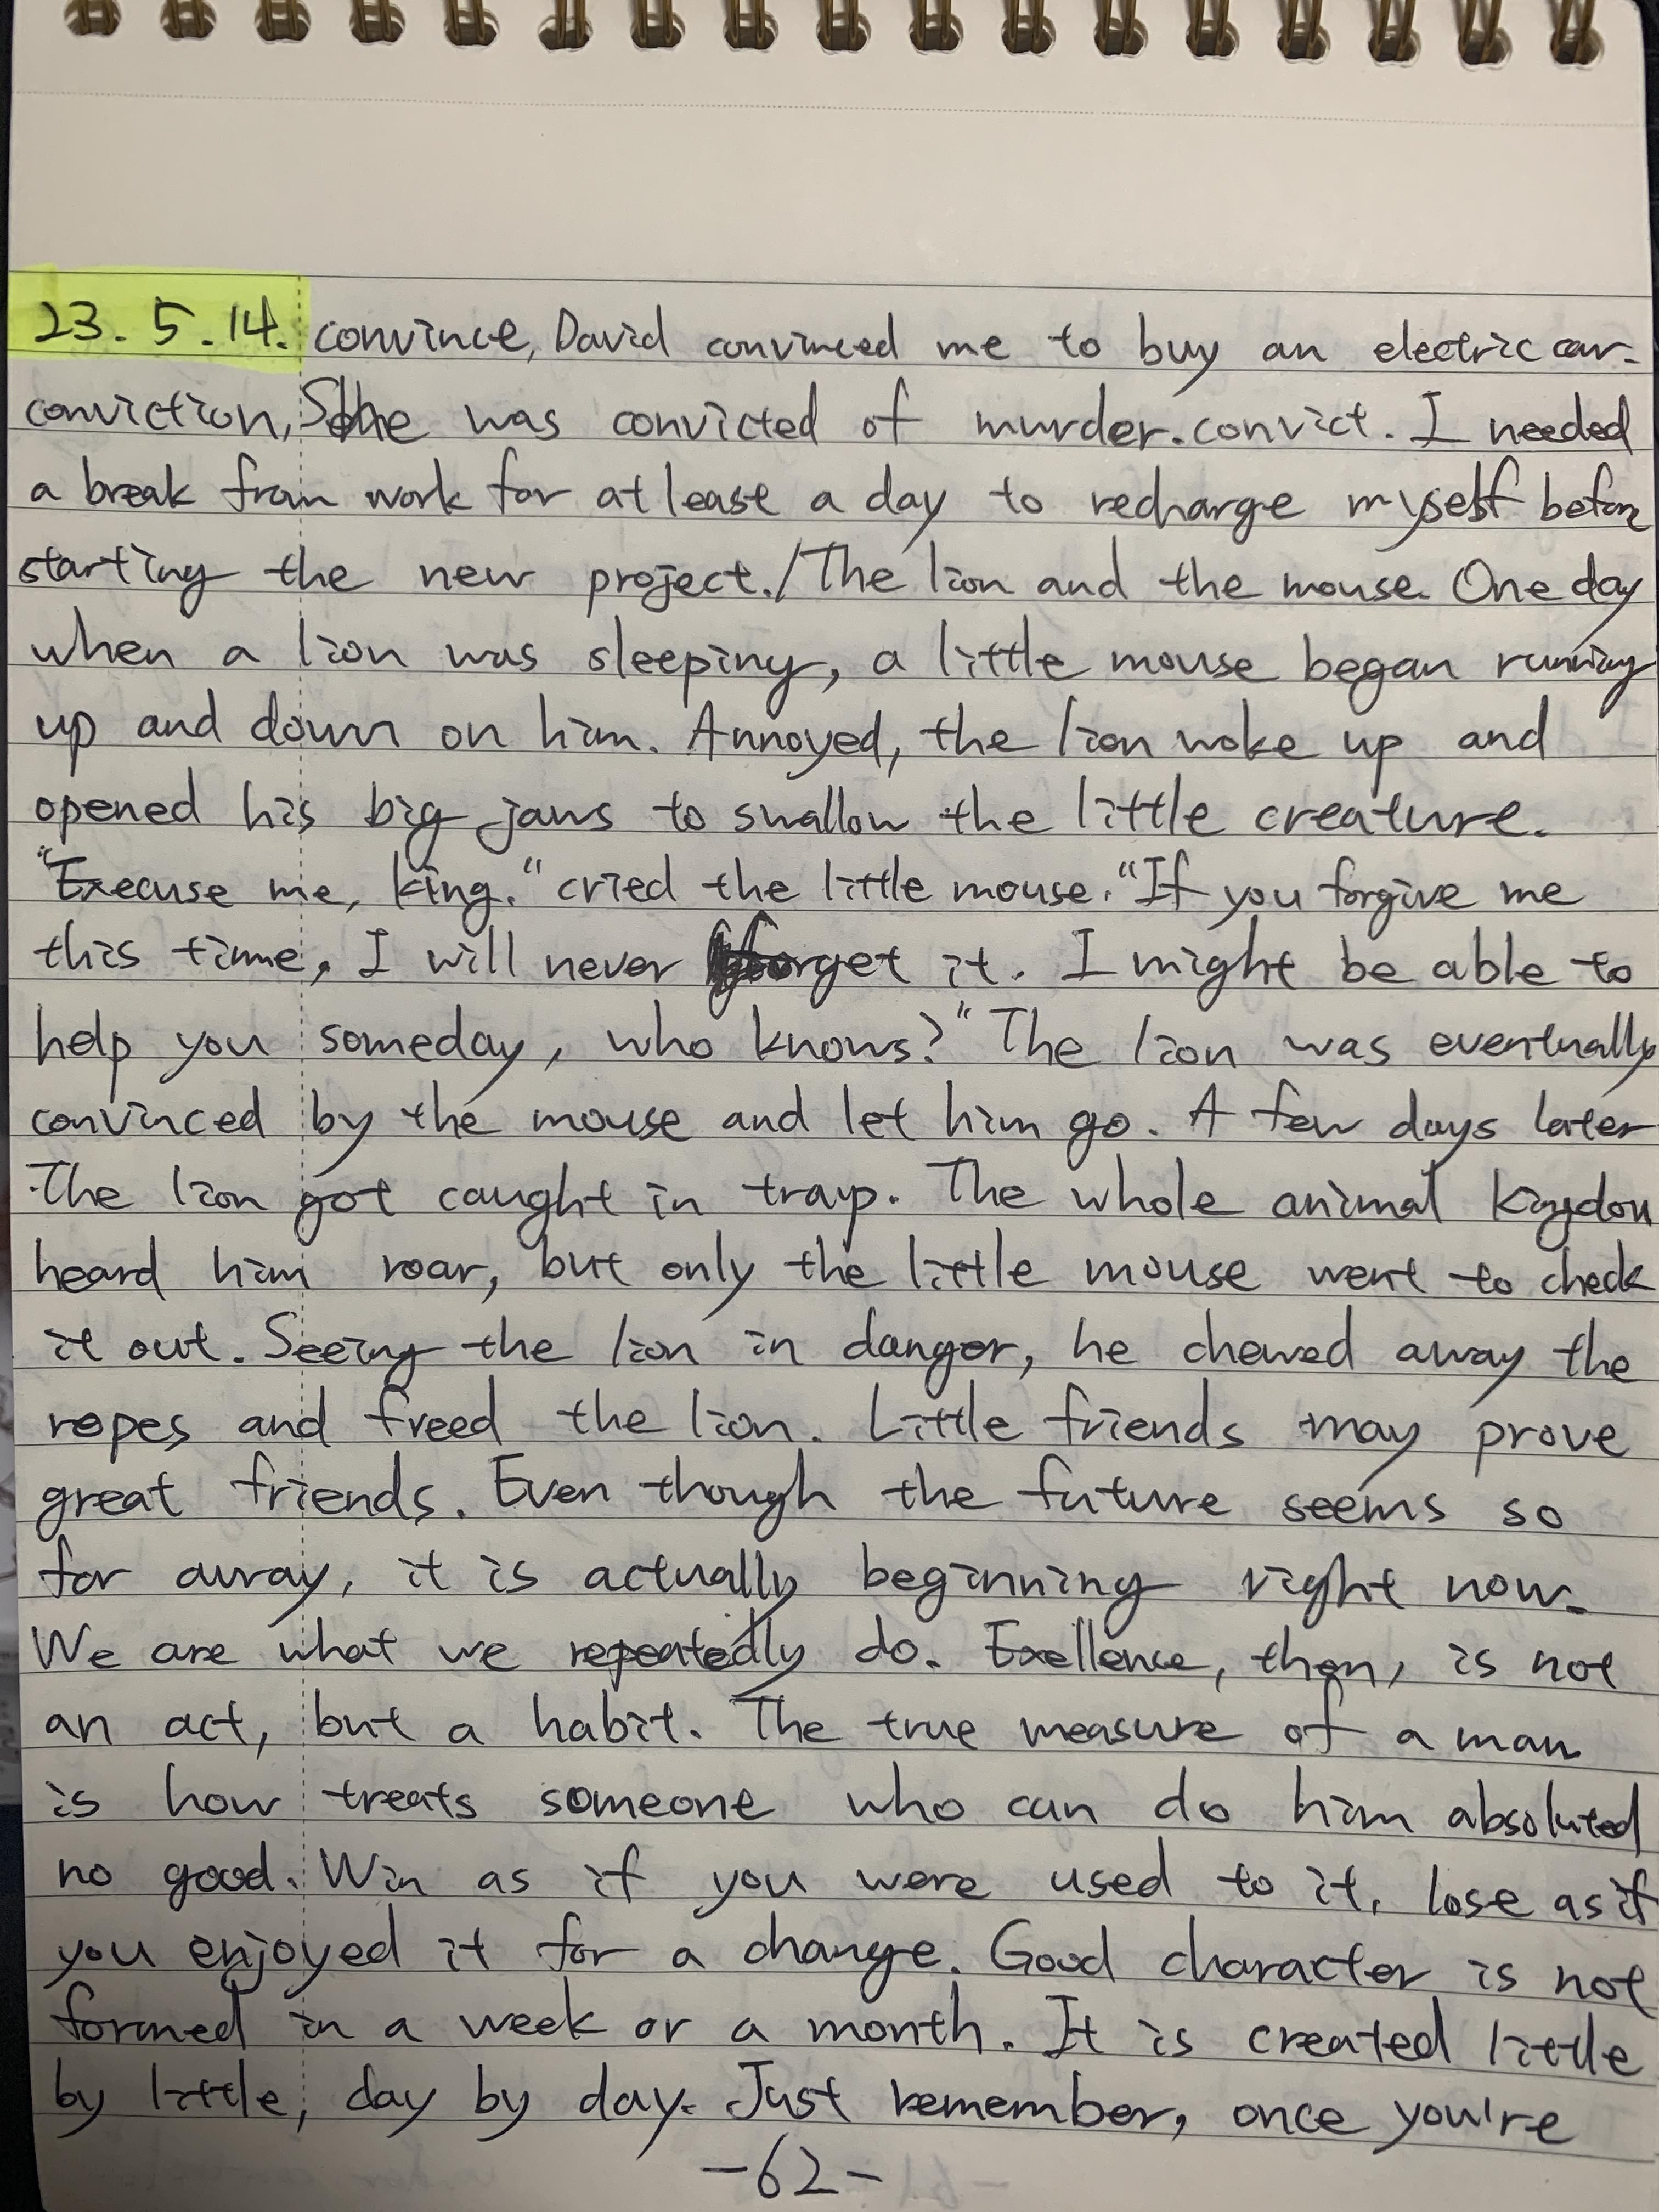 23. 5. 14. convince, David convinced me to buy an electric car.
conviction, She was convicted of murder. convict. I needed
a break from work for at lease a day to recharge myself before
starting the new project./The lion and the mouse. One day
when a lion was sleeping, a little mouse began running
up and down on him. Annoyed, the lion woke up and
opened his big jaws to swallow the little creature.
"Execuse me, king." cried the little mouse. "If you forgive me
this time, I will never forget it. I might be able to
help you someday, who knows?" The lion was eventually
convinced by the mouse and let him go. A few days later
The lion got caught in trap. The whole animal kingdom
heard him roar, but only the little mouse went to check
it out. Seeing the lion in danger, he chewed away the
ropes and freed the lion. Little friends may prove
great friends. Even though the future seems so
far away, it is actually beginning right now.
We are what we repeatedly do. Exellence, then, is not
an act, but a habit. The true measure of a man
is how treats someone who can do him absoluted
no good. Win as if you were used to it, lose as if
you enjoyed it for a change. Good character is not
formed in a week or a month. It is created little
by little, day by day. Just remember, once you're
-62-